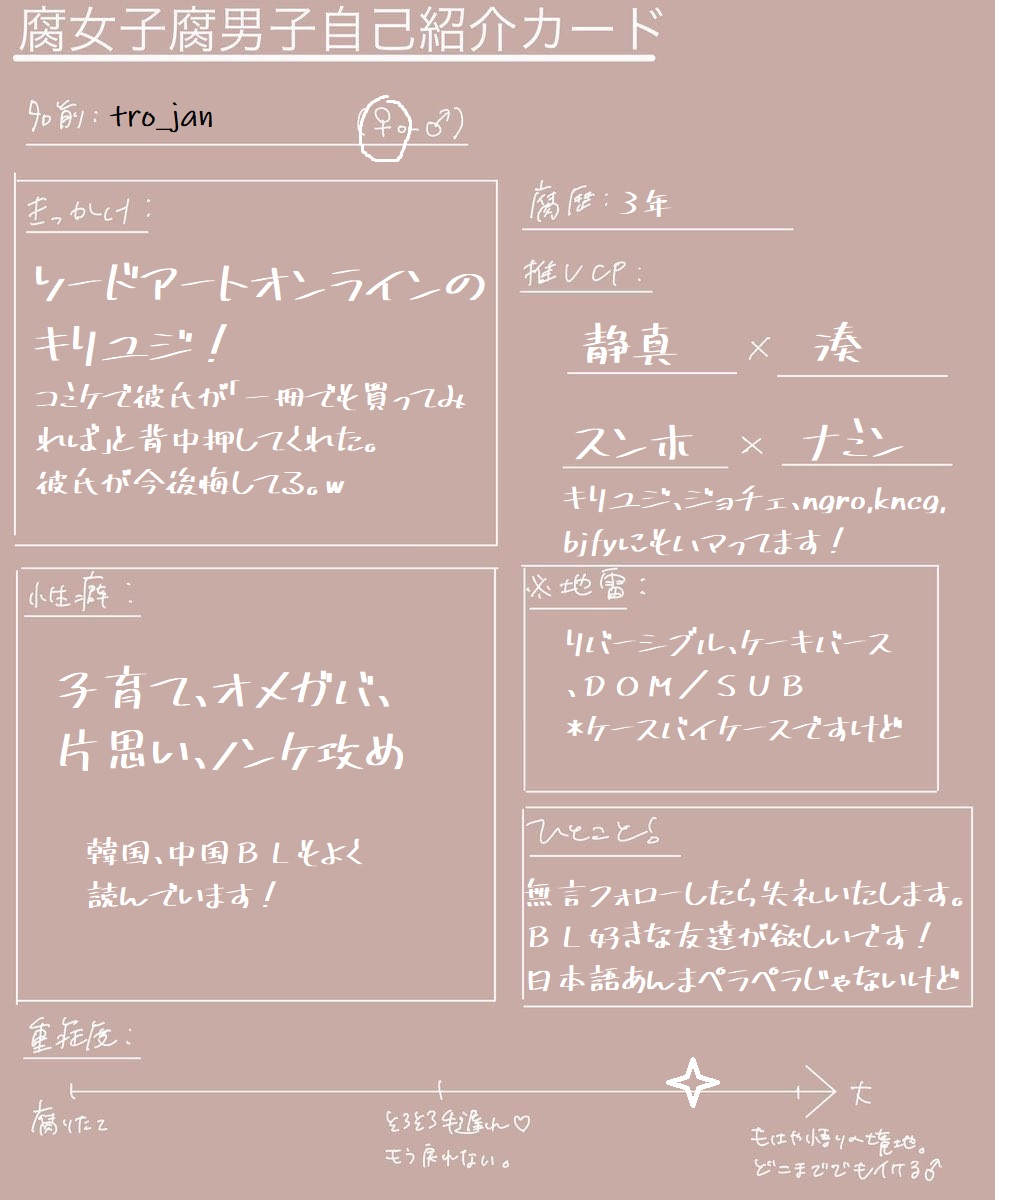 腐女子腐男子自己紹介カード
名前: tro_jan (♀。♂)
きっかけ:
ソードアートオンラインの
キリユジ！
コミケで彼氏が「一冊でも買ってみ
れば」と背中押してくれた。
彼氏が今後悔してる。w
腐歴: 3年
推しCP:
静真 × 湊
スンホ × ナミン
キリユジ、ジョチェ、ngro,kncg,
bjfyにもハマってます！
性癖:
子育て、オメガバ、
片思い、ノンケ攻め
韓国、中国BLもよく
読んでいます！
※地雷:
リバーシブル、ケーキバース
、DOM／SUB
*ケースバイケースですけど
ひとこと!
無言フォローしたら失礼いたします。
BL好きな友達が欲しいです！
日本語あんまペラペラじゃないけど
重症度:
腐りたて
そろそろ手遅れ♡
もう戻れない。
もはや悟りの境地。
どこまででもイケる♂